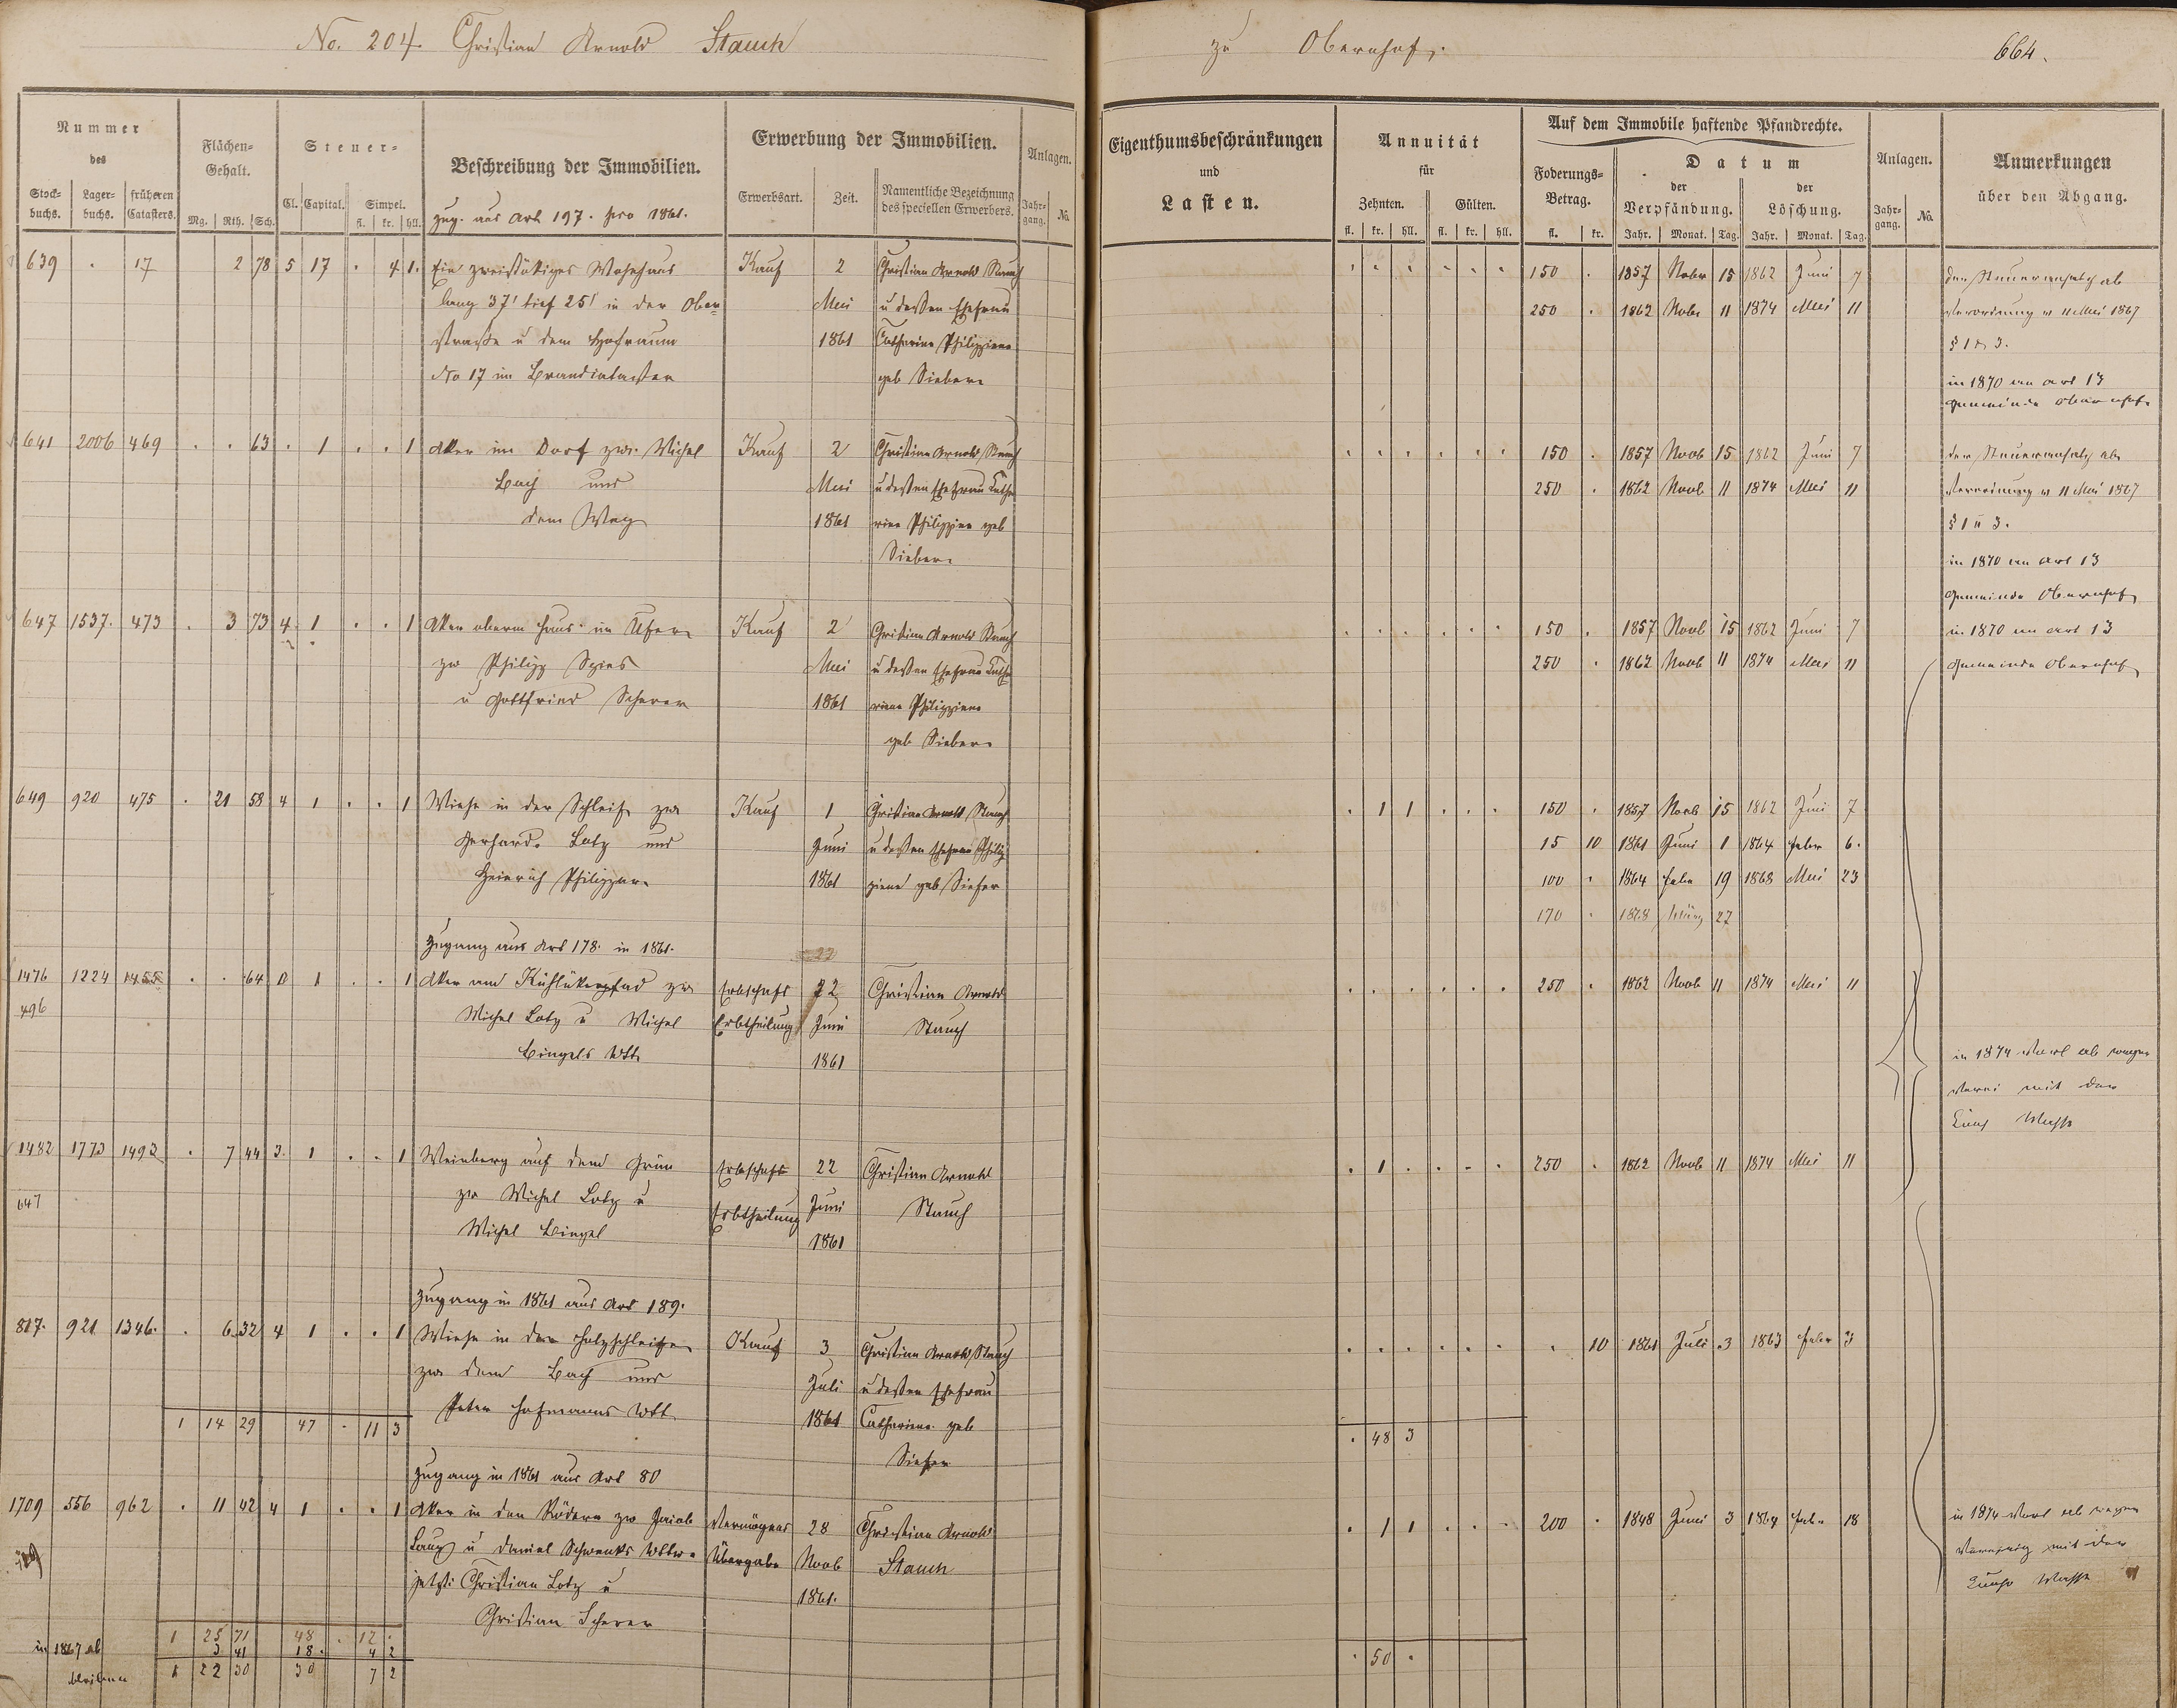 No. 204. Christian Arnold Stauch
zu Obernhof.
664.
Nummer
des
Stock-
buchs.
Lager-
buchs.
früheren
Catasters.
Flächen-
Gehalt.
Mg. Rth. Sch.
Steuer-
Cl. Capital. Simpel.
fl. kr. hll.
Beschreibung der Immobilien.
zug. aus Art 197. pro 1861.
Erwerbung der Immobilien.
Erwerbsart. Zeit.
Namentliche Bezeichnung
des speciellen Erwerbers.
Anlagen.
Jahr-
gang. No.
Eigenthumsbeschränkungen
und
Lasten.
Annuität
für
Zehnten. Gülten.
fl. kr. hll. fl. kr. hll.
Auf dem Immobile haftende Pfandrechte.
Foderungs-
Betrag.
fl. kr.
Datum
der
Verpfändung.
Jahr. Monat. Tag.
der
Löschung.
Jahr. Monat. Tag.
Anlagen.
Jahr-
gang. No.
Anmerkungen
über den Abgang.
639 . 17 2 78 5 17 . 4 1. Ein zweistökiges Wohnhaus Kauf 2 Christian Arnold Stauch
lang 37' tief 25' in der Ober- Mai u dessen Ehefrau
strasse u dem Hofraum 1861 Catharine Philippine
No 17 im Brandcataster geb Sieber
150 . 1857 Nobr 15 1862 Juni 7
250 . 1862 Nobr 11 1874 Mai 11
Verordnung v 11 Mai 1867
§ 1 u 3.
in 1870 an Art 13
Gemeinde Obernhof
641 2006 469 . . 63 . 1 . . 1 Aker im Dorf zw. Michel Kauf 2 Christian Arnold Stauch
Bach und Mai u dessen Ehefrau Catha
dem Weg 1861 rine Philippine geb
Sieber
150 . 1857 Novb 15 1862 Juni 7
250 . 1862 Novb 11 1874 Mai 11
Verordnung v 11 Mai 1867
§ 1 u 3.
in 1870 an Art 13
Gemeinde Obernhof
647 1537. 473 . 3 73 4 1 . . 1 Aker oberm Haus im Ufer Kauf 2 Christian Arnold Stauch
zw Philipp Spies Mai u dessen Ehefrau Catha
u Gottfried Scherer 1861 rine Philippine
geb Sieber
150 . 1857 Novb 15 1862 Juni 7
250 . 1862 Novb 11 1874 Mai 11
in 1870 an Art 13
Gemeinde Obernhof
649 920 475 . 21 58 4 1 . . 1 Wiese in der Schleif zw Kauf 1 Christian Arnold Stauch
Gerhard Lotz und Juni u dessen Ehefrau Philip
Heinrich Philippar 1861 pine geb Siefer
. 1 1 . . . 150 . 1857 Novb 15 1862 Juni 7
15 10 1861 Juni 1 1864 Febr 6.
100 . 1864 Febr 19 1868 Mai 23
170 . 1868 März 27
Zugang aus Art 178. in 1861.
1476 1224 1455 . . 64 1 . . 1 Aker am zw Erbschaft 22 Christian Arnold
496 Michel Lotz u Michel Erbtheilung Juni Stauch
Bingels Wtt 1861
250 . 1862 Novb 11 1874 Mai 11
in 1874 ab wegen
mit der
Masse
1482 1773 1492 . 7 44 3 1 . . 1 Weinberg auf dem Grün Erbschaft 22 Christian Arnold
647 zw Michel Lotz u Erbtheilung Juni Stauch
Michel Bingel 1861
. 1 . . . . 250 . 1862 Novb 11 1874 Mai 11
Zugang in 1861 aus Art 189.
817. 921 1346. . 6 32 4 1 . . 1 Wiese in der Holzschleifen Kauf 3 Christian Arnold Stauch
zw dem Bach und Juli u dessen Ehefrau
Peter Hofmanns Wtt 1861 Catharine geb
Siefer
. 10 1861 Juli 3 1863 Febr 3
1 14 29 47 - 11 3
. 48 3
Zugang in 1861 aus Art 80
1709 556 962 . 11 42 4 1 . . 1 Aker in den Rödern zw Jacob Vermögens 28 Christian Arnold
Lang u Daniel Schwenks Wttw Übergabe Novb Stauch
jetzt Christian Lotz u 1861.
Christian Scherer
. 1 1 . . . 200 . 1848 Juni 3 1864 Febr 18
in 1874 ab wegen
mit der
Masse
1 25 71 48 . 12 .
in 1867 ab 3 41 18. 4 2
bleiben 1 22 30 30 7 2
. 50 .